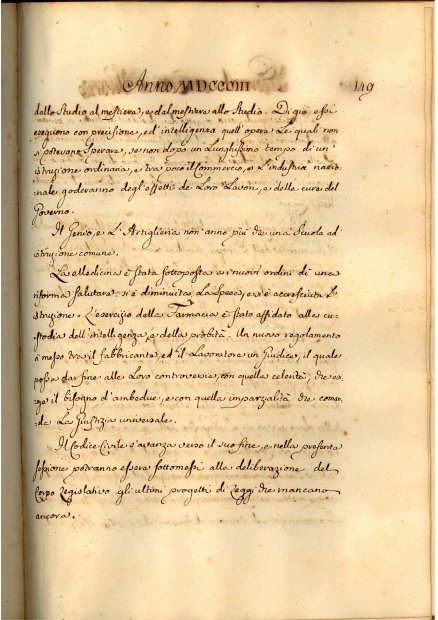 Anno MDCCCIII 149
dallo Studio al mestiere, e dal mestiere allo Studio. Di già essi
eseguono con precisione, ed' intelligenza quell' opere Le quali non
si potevano Sperare, se non dopo un Lunghissimo tempo di un'
istruzione ordinaria, e tra poco il Commercio, e L'industria nazio
nale goderanno degl' effetti de Loro Lavori, e delle cure del
Governo.
Il Genio, e L' Artiglieria non anno più che una Scuola ad
istruzione comune.
La Medicina è stata sottoposta a' nuovi ordini di una
riforma salutare, si è diminuita La Spesa, e si è accresciuta L'i
struzione. L'esercizio della Farmacia è stato affidato alla cu
stodia dell' intelligenza, e della probità. Un nuovo regolamento
à messo tra il fabbricante, ed il Lavoratore un Giudice, il quale
possa dar fine alle Loro controversie, con quella celerità, che esi
ge il bisogno d'ambedue, e con quella imparzialità che coman
da La Giustizia universale.
Il Codice Civile s'avanza verso il suo fine, e nella presente
sessione potranno essere sottomessi alla deliberazione del
Corpo Legislativo gli ultimi progetti di Leggi che mancano
ancora.